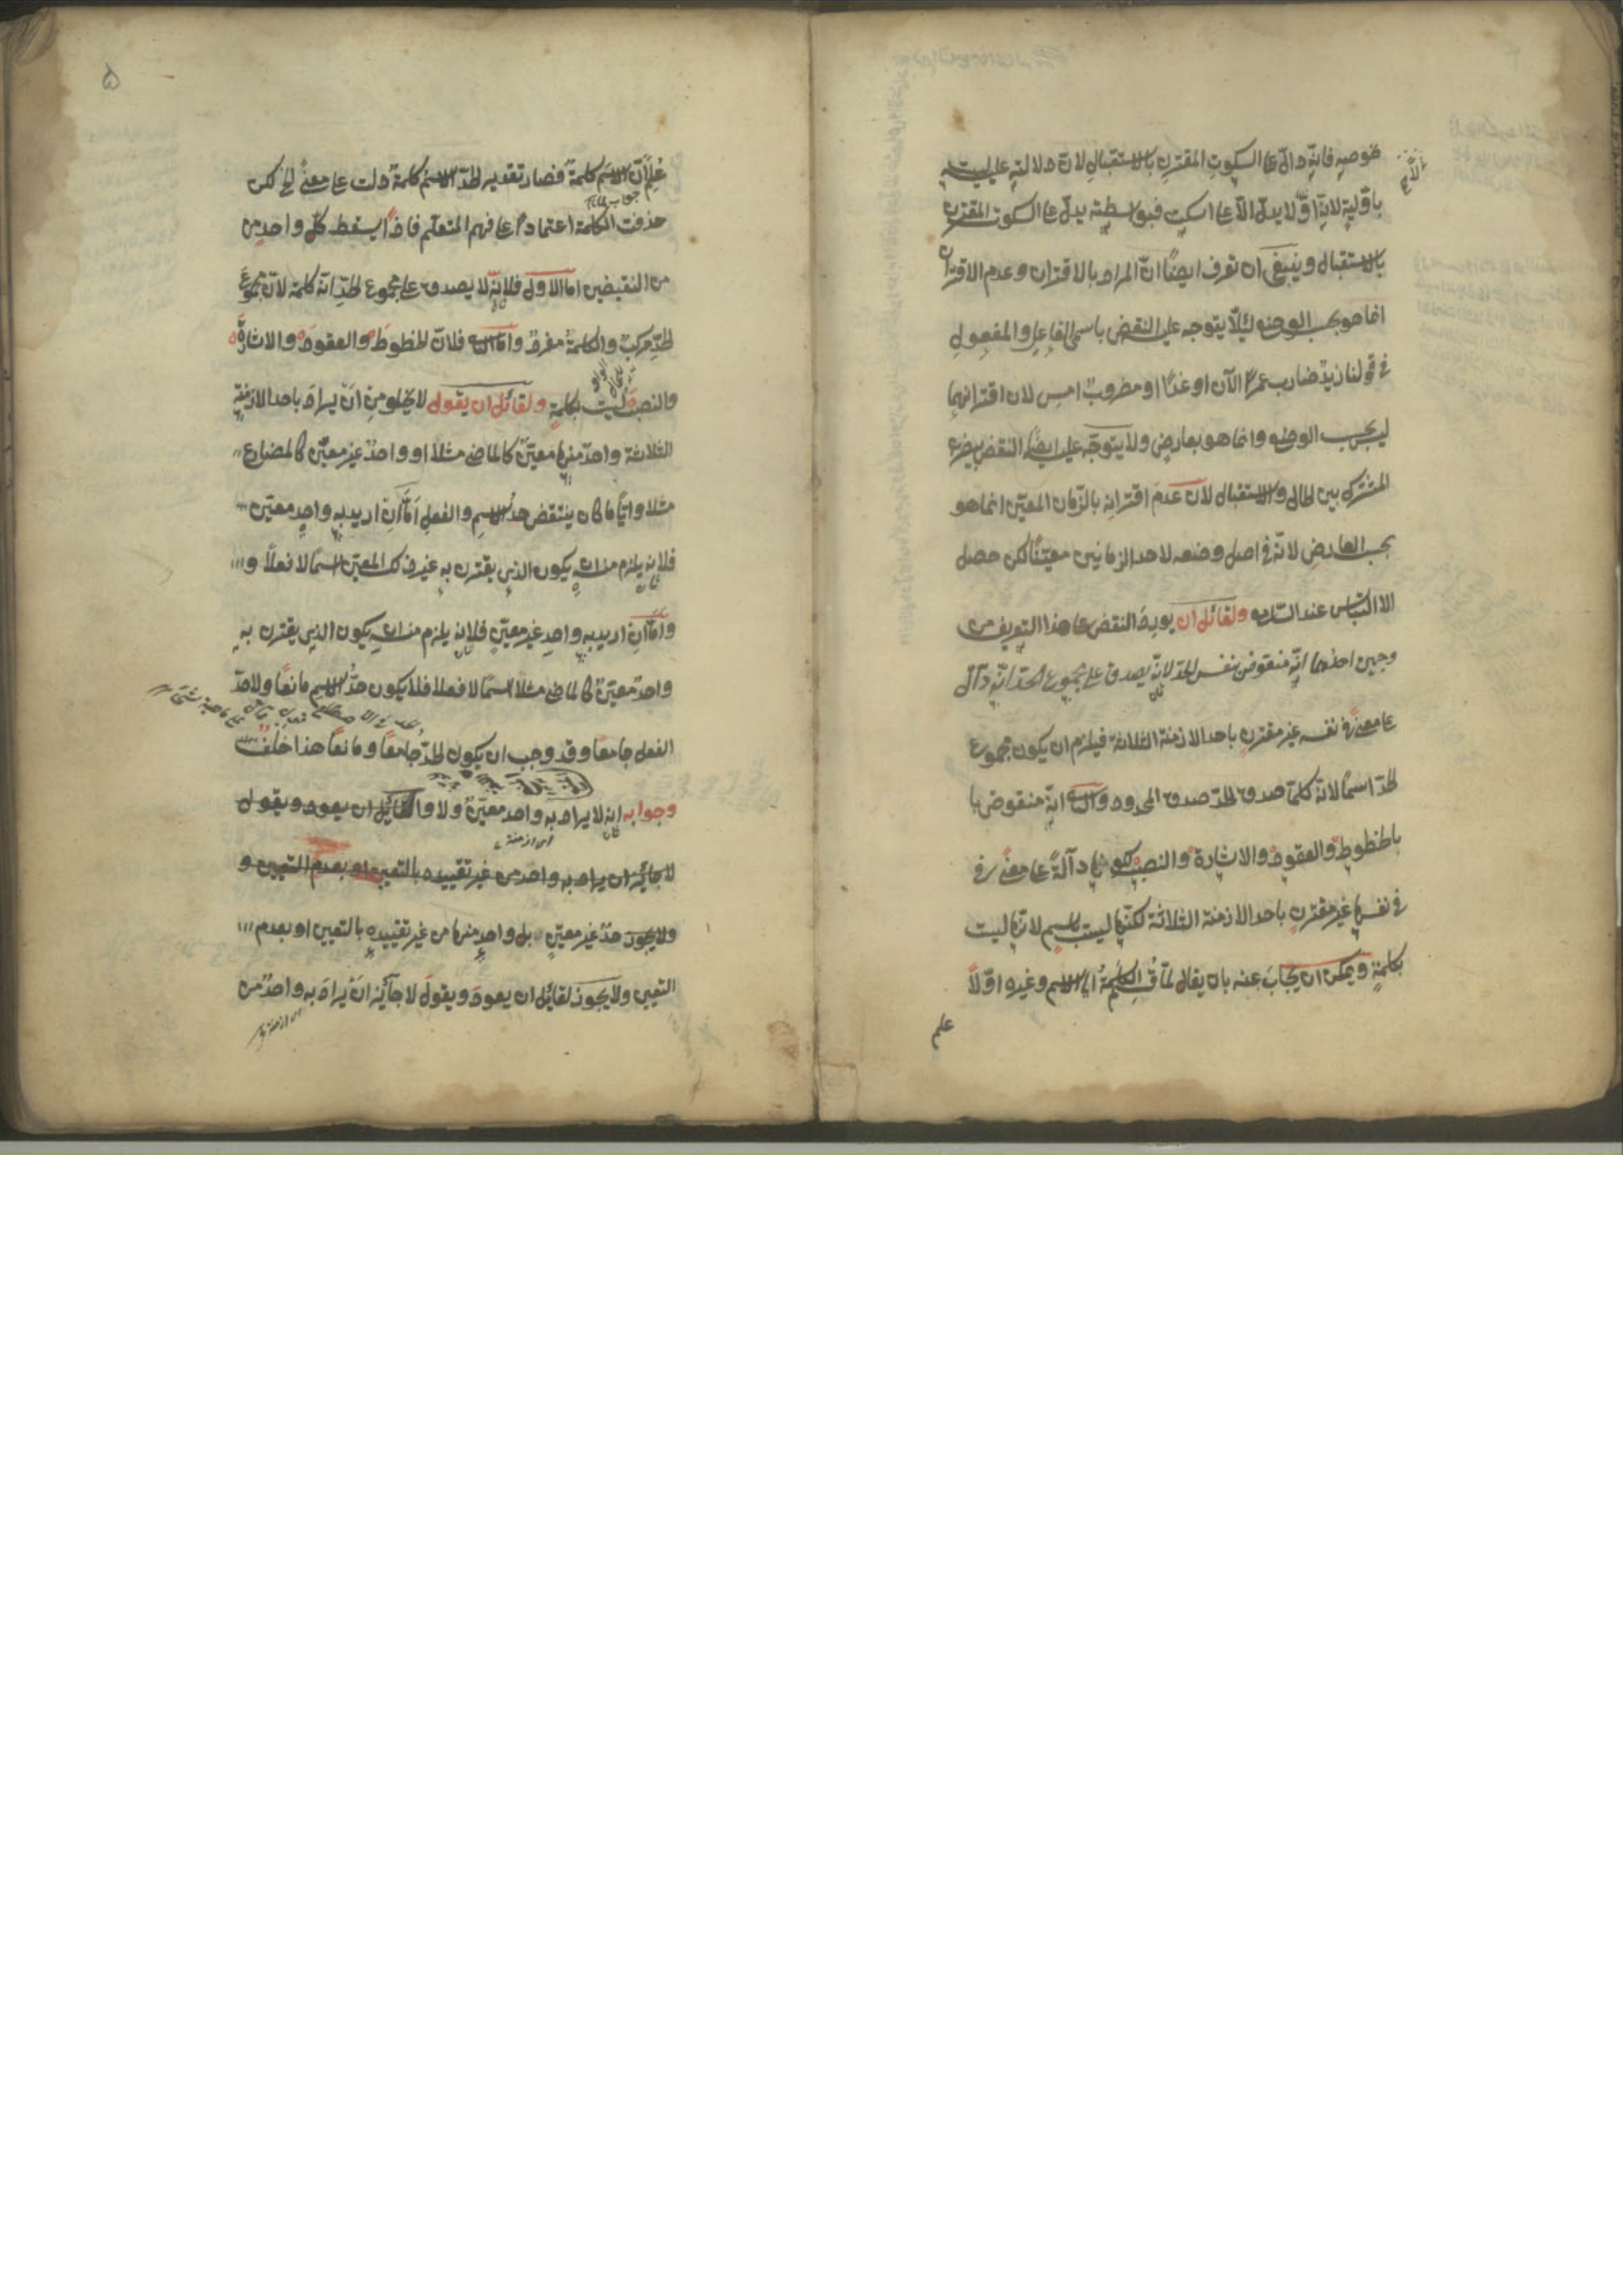 نحو صه فانه دال على السكوت المقترن بالاستقبال لان دلالته عليه ليست
باولية لانه اولا يدل الا على اسكت فبواسطته يدل على السكوت المقترن
بالاستقبال وينبغي ان تعرف ايضًا ان المراد بالاقتران وعدم الاقتران
انما هو بحسب الوضع لئلا يتوجه عليه النقض باسمي الفاعل والمفعول
في قولنا زيد ضارب عمرًا الآن او غدًا او مضروب امس لان اقترانهما
ليس بحسب الوضع وانما هو بعارض ولا يتوجّه عليه ايضًا النقض
المشترك بين الحال والاستقبال لان عدم اقترانه بالزمان المعين انما هو
بحسب العارض لانه في اصل وضعه لاحد الزمانين معينًا لكن حصل
الالتباس عند السامع ولقائل ان يورد النقض على هذا التعريف من
وجهين احدهما انه منقوض بنفس الحد لانه يصدق على مجموع الحد انه دال
على معنى في نفسه غير مقترن باحد الازمنة الثلاثة فيلزم ان يكون مجموع
الحد اسمًا لانه كلما صدق الحد صدق المحدود والثاني انه منقوض
بالخطوط والعقود والاشارة والنصب كونها دالة على معنى في
في نفسها غير مقترن باحد الازمنة الثلاثة لكنها ليست باسم لانها ليست
بكلمةٍ ويمكن ان يجاب عنه بان يقال لما الكلمة الى الاسم وغيره اولًا
علم
۵
عُلِمَ ان الاسم كلمة فصار تقدير الحد الاسم كلمة دلت على معنى الخ لكن
حذفت الكلمة اعتمادًا على فهم المتعلم فاذًا يسقط كل واحد من
من النقيضين اما الاول فلانه لا يصدق على مجموع الحد انه كلمة لان مجموع
الحد مركب والكلمة مفرد واما الثاني فلان الخطوط والعقود والاشارة
والنصب ليست بكلمةٍ ولقائل ان يقول لا يخلو من ان يراد باحد الازمنة
الثلاثة واحد منها معيّن كالماضي مثلا او واحد غير معيّن كالمضارع
مثلا وايًا ما كان ينتقض حد الاسم والفعل اما ان اريد به واحد معيّن
فلانه يلزم منه ان يكون الذي يقترن به غير ذلك المعين اسمًا لا فعلًا و
واما ان اريد به واحد غير معيّن فلانه يلزم منه ان يكون الذي يقترن به
واحد معيّن كالماضي مثلا اسمًا لا فعلا فلا يكون حد الاسم مانعًا ولا حد
الفعل جامعًا وقد وجب ان يكون الحد جامعًا ومانعًا هذا خلف
وجوابه انه لا يراد به واحد معين ولا لقائل ان يعود ويقول
لا جائز ان يراد به واحد من غير تقييده بالتعيين او بعدم التعيين و
ولا يجوز غير معين بل واحد منها من غير تقييده بالتعيين او بعدم
التعيين ولا يجوز لقائل ان يعود ويقول لا جائز ان يراد به واحد من